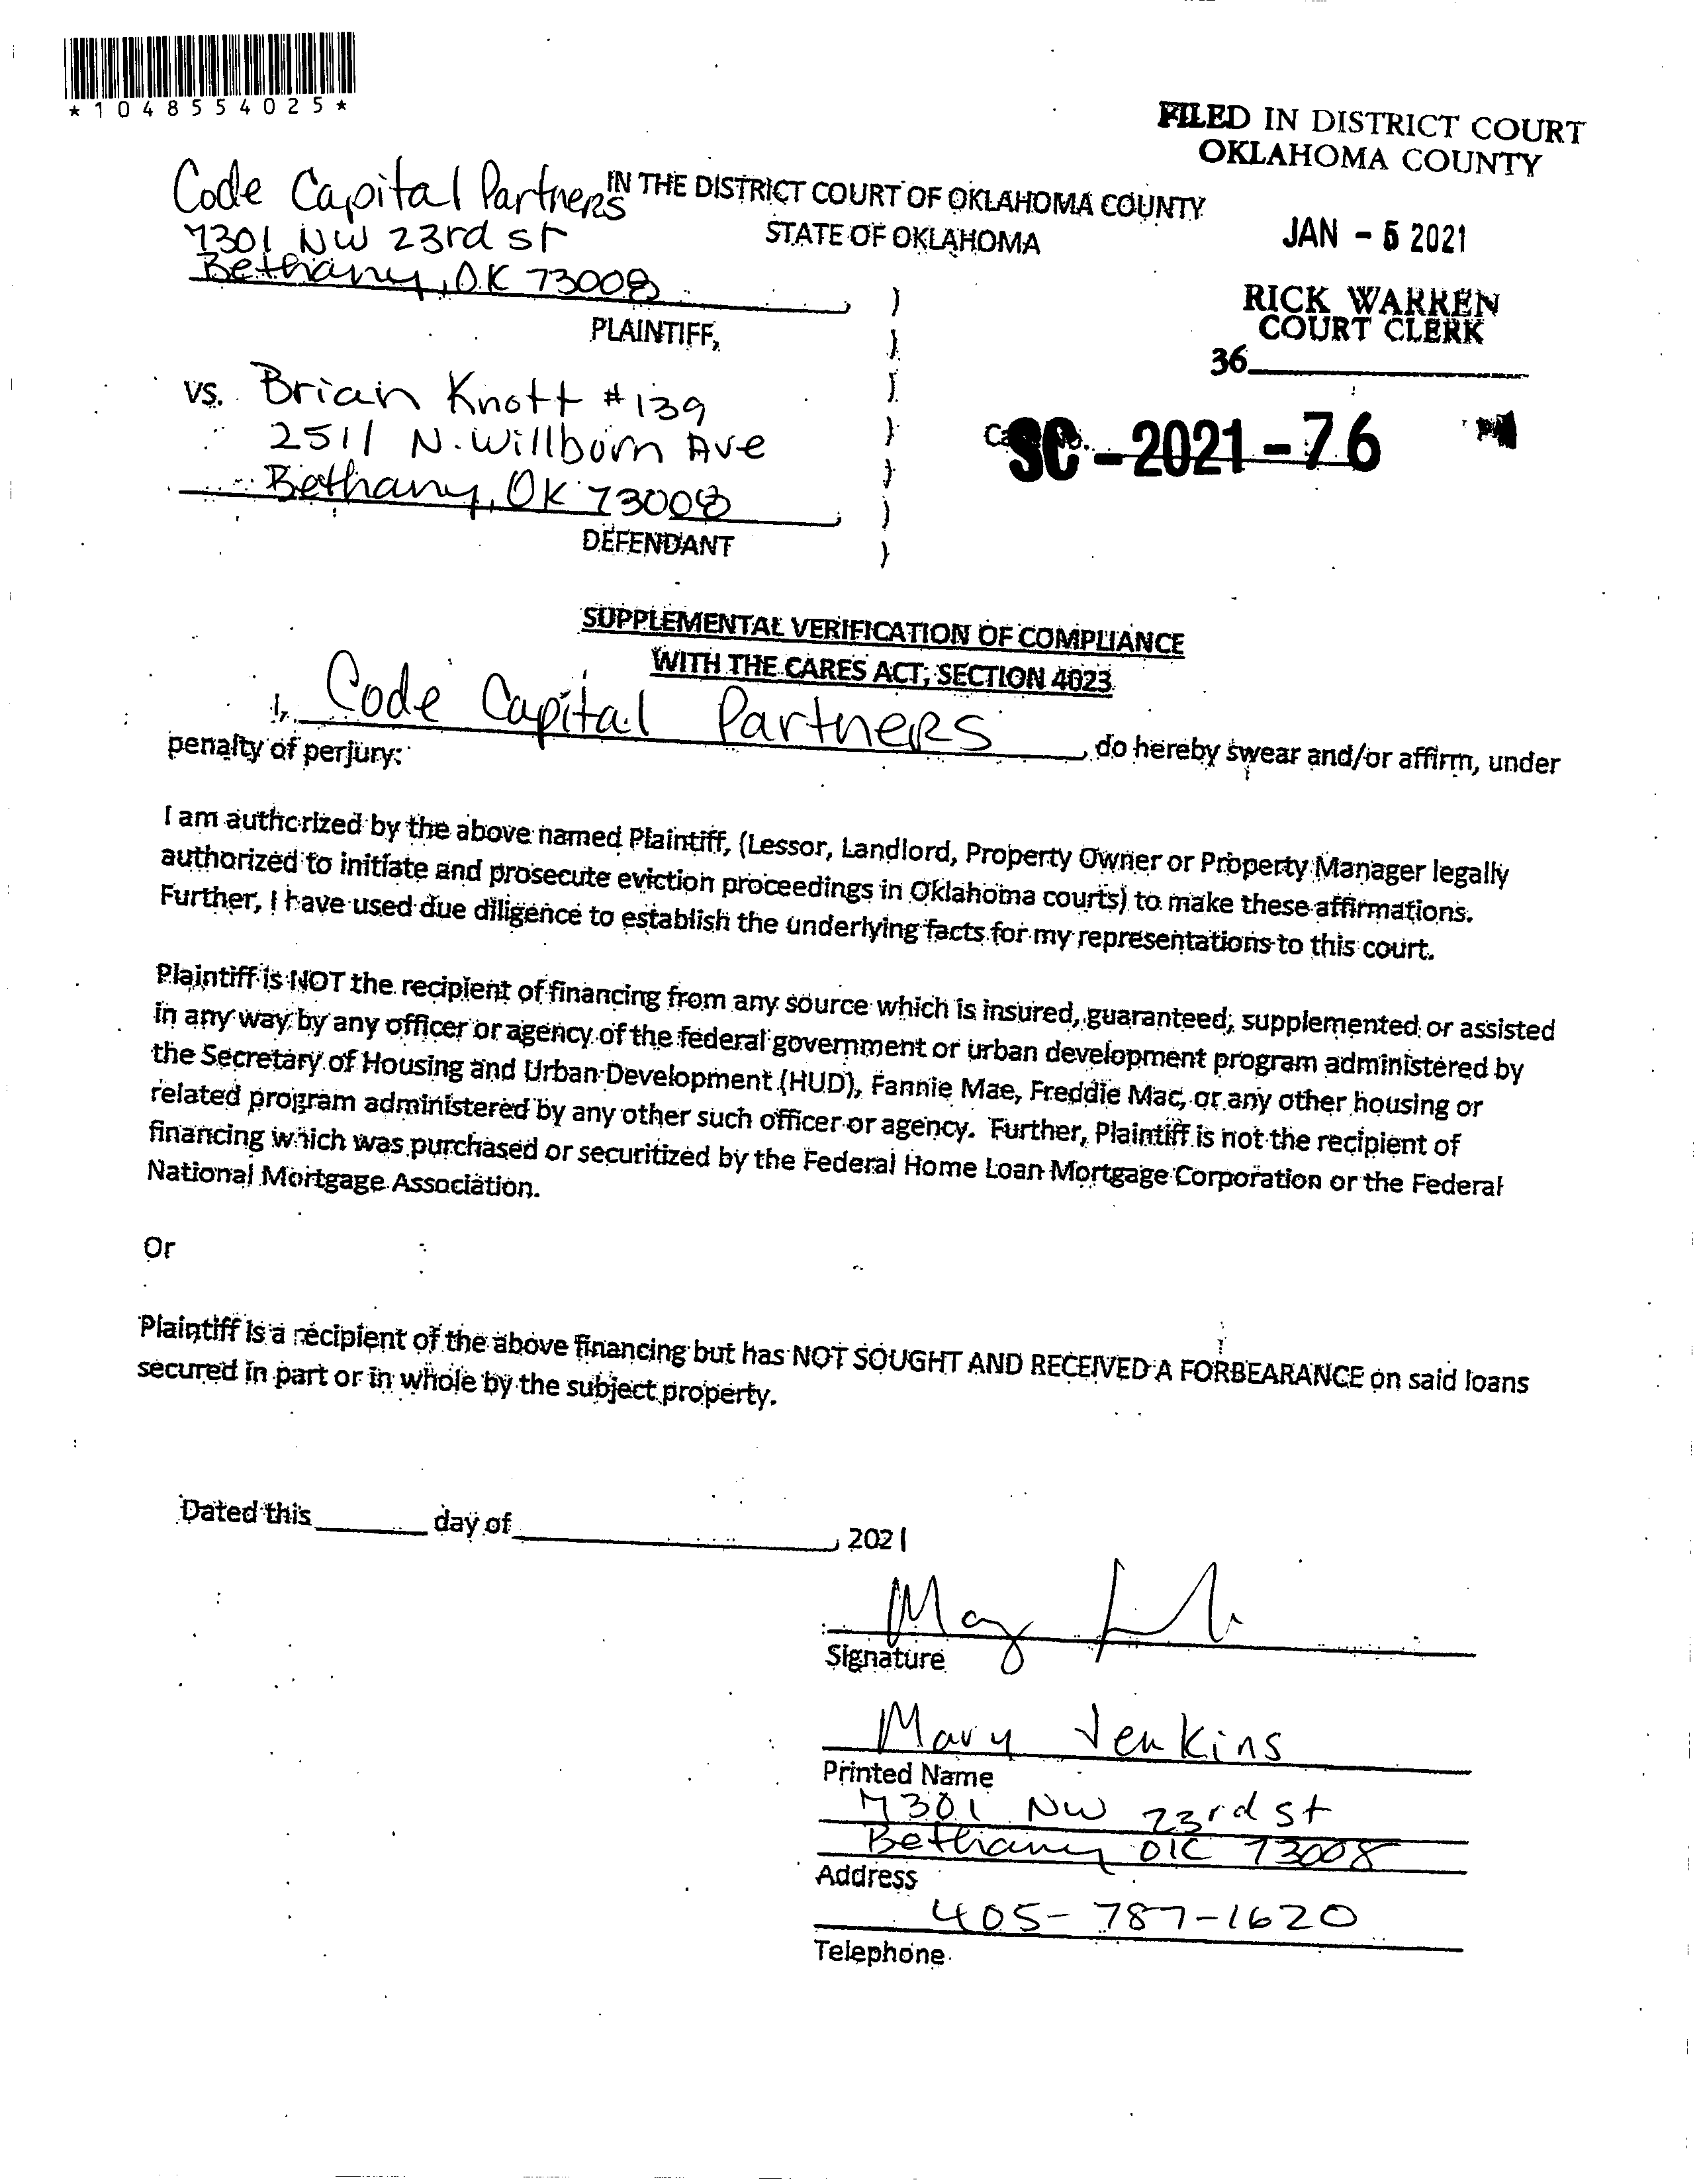 *1048554025*
FILED IN DISTRICT COURT
OKLAHOMA COUNTY
Code Capital Partners
IN THE DISTRICT COURT OF OKLAHOMA COUNTY
7301 NW 23rd st
STATE OF OKLAHOMA
JAN - 5 2021
Bethany, OK 73008
PLAINTIFF,
RICK WARREN
COURT CLERK
36
vs. Brian Knott #139
2511 N. Willburn Ave
SC-2021-76
Bethany, OK 73008
DEFENDANT
SUPPLEMENTAL VERIFICATION OF COMPLIANCE
WITH THE CARES ACT, SECTION 4023
I, Code Capital Partners, do hereby swear and/or affirm, under
penalty of perjury:
I am authorized by the above named Plaintiff, (Lessor, Landlord, Property Owner or Property Manager legally
authorized to initiate and prosecute eviction proceedings in Oklahoma courts) to make these affirmations.
Further, I have used due diligence to establish the underlying facts for my representations to this court.
Plaintiff is NOT the recipient of financing from any source which is insured, guaranteed, supplemented or assisted
in any way by any officer or agency of the federal government or urban development program administered by
the Secretary of Housing and Urban Development (HUD), Fannie Mae, Freddie Mac, or any other housing or
related program administered by any other such officer or agency. Further, Plaintiff is not the recipient of
financing which was purchased or securitized by the Federal Home Loan Mortgage Corporation or the Federal
National Mortgage Association.
Or
Plaintiff is a recipient of the above financing but has NOT SOUGHT AND RECEIVED A FORBEARANCE on said loans
secured in part or in whole by the subject property.
Dated this ______ day of ______________, 2021
Signature
Mary Jenkins
Printed Name
7301 NW 23rd st
Bethany OK 73008
Address
405-787-1620
Telephone